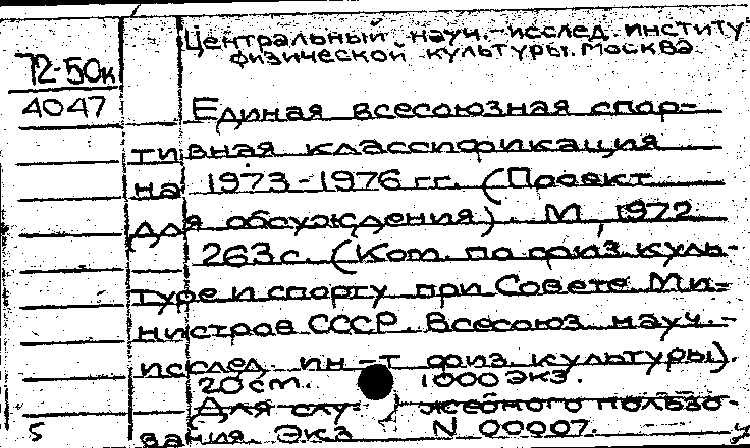 Центральный науч.-исслед. институт
физической культуры. Москва.
72-50к
4047
Единая всесоюзная спор-
тивная классификация
на 1973-1976 гг. (Проект
для обсуждения). М., 1972
263с. (Ком. по физ. куль-
туре и спорту при Совете Ми-
нистров СССР. Всесоюз. науч.-
исслед. ин-т физ. культуры).
20 см. 1000 экз.
Для служебного пользо-
вания. Экз N 00007.
5